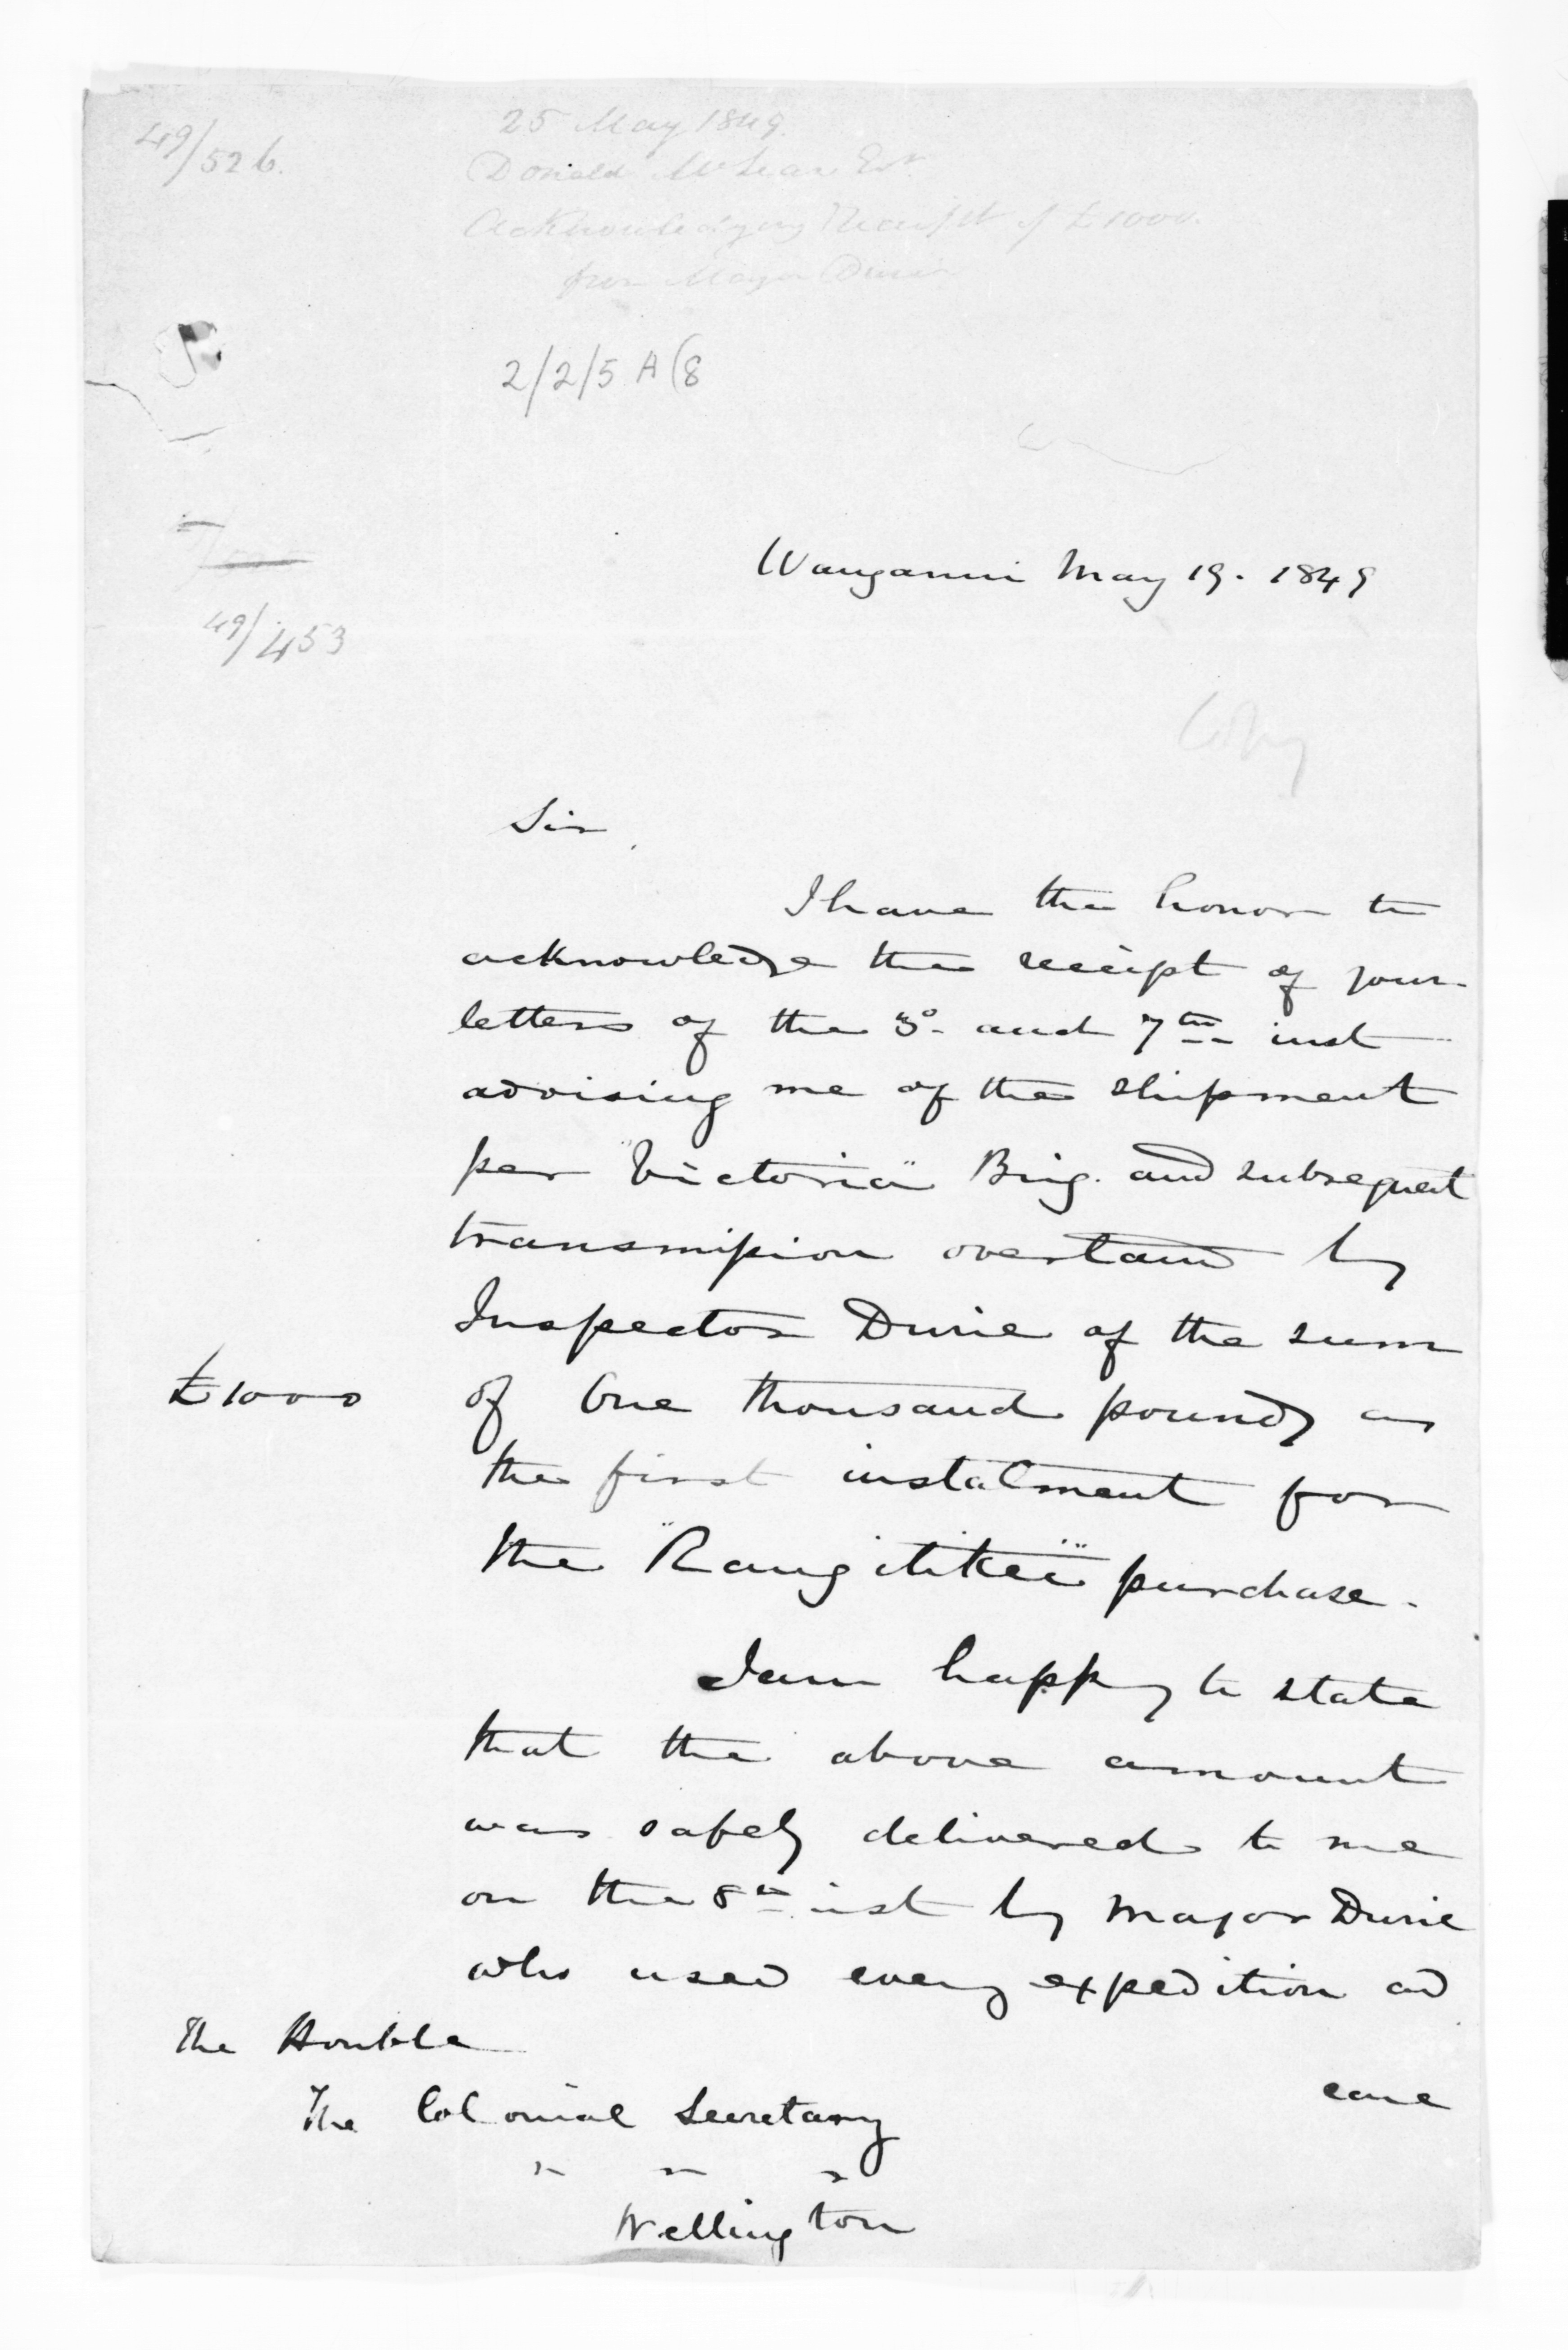 49/526.
25 May 1849.
Donald McLean Esqr
Acknowledging Receipt of £1000.
from Major Durie
2/2/5 A(8
Wanganui May 19. 1849
49/453
Copy
Sir,
I have the honor to
acknowledge the receipt of your
letters of the 3d. and 7th inst
advising me of the shipment
per "Victoria" Brig. and subsequent
transmission overland by
Inspector Durie of the sum
£1000 of One thousand pounds as
the first instalment for
the "Rangitikei" purchase.
I am happy to state
that the above amount
was safely delivered to me
on the 8th inst by Major Durie
who used every expedition and
care
The Honble
The Colonial Secretary
" " "
Wellington